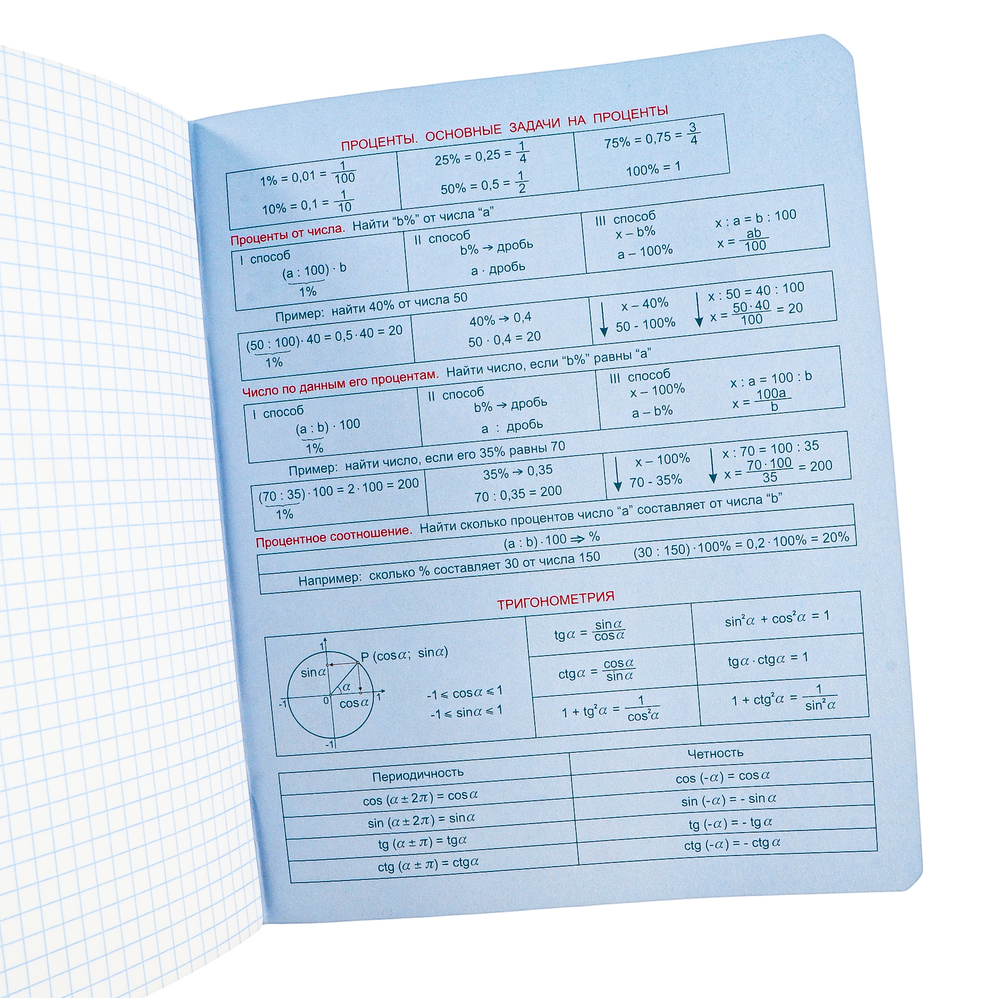 ПРОЦЕНТЫ. ОСНОВНЫЕ ЗАДАЧИ НА ПРОЦЕНТЫ
1% = 0,01 = 1/100
10% = 0,1 = 1/10
25% = 0,25 = 1/4
50% = 0,5 = 1/2
75% = 0,75 = 3/4
100% = 1
Проценты от числа. Найти “b%” от числа “a”
I способ
(a : 100) · b
1%
II способ
b% → дробь
a · дробь
III способ
x – b%
a – 100%
x : a = b : 100
x = ab/100
Пример: найти 40% от числа 50
(50 : 100) · 40 = 0,5 · 40 = 20
1%
40% → 0,4
50 · 0,4 = 20
x – 40%
50 - 100%
x : 50 = 40 : 100
x = 50 · 40/100 = 20
Число по данным его процентам. Найти число, если “b%” равны “a”
I способ
(a : b) · 100
1%
II способ
b% → дробь
a : дробь
III способ
x – 100%
a – b%
x : a = 100 : b
x = 100a/b
Пример: найти число, если его 35% равны 70
(70 : 35) · 100 = 2 · 100 = 200
1%
35% → 0,35
70 : 0,35 = 200
x – 100%
70 - 35%
x : 70 = 100 : 35
x = 70 · 100/35 = 200
Процентное соотношение. Найти сколько процентов число “a” составляет от числа “b”
(a : b) · 100 ⇒ %
Например: сколько % составляет 30 от числа 150 (30 : 150) · 100% = 0,2 · 100% = 20%
ТРИГОНОМЕТРИЯ
1
P (cosα; sinα)
sinα
α
-1
0
cosα
1
-1
-1 ⩽ cosα ⩽ 1
-1 ⩽ sinα ⩽ 1
tgα = sinα/cosα
sin²α + cos²α = 1
ctgα = cosα/sinα
tgα · ctgα = 1
1 + tg²α = 1/cos²α
1 + ctg²α = 1/sin²α
Периодичность
Четность
cos (α ± 2π) = cosα
cos (-α) = cosα
sin (α ± 2π) = sinα
sin (-α) = - sinα
tg (α ± π) = tgα
tg (-α) = - tgα
ctg (α ± π) = ctgα
ctg (-α) = - ctgα